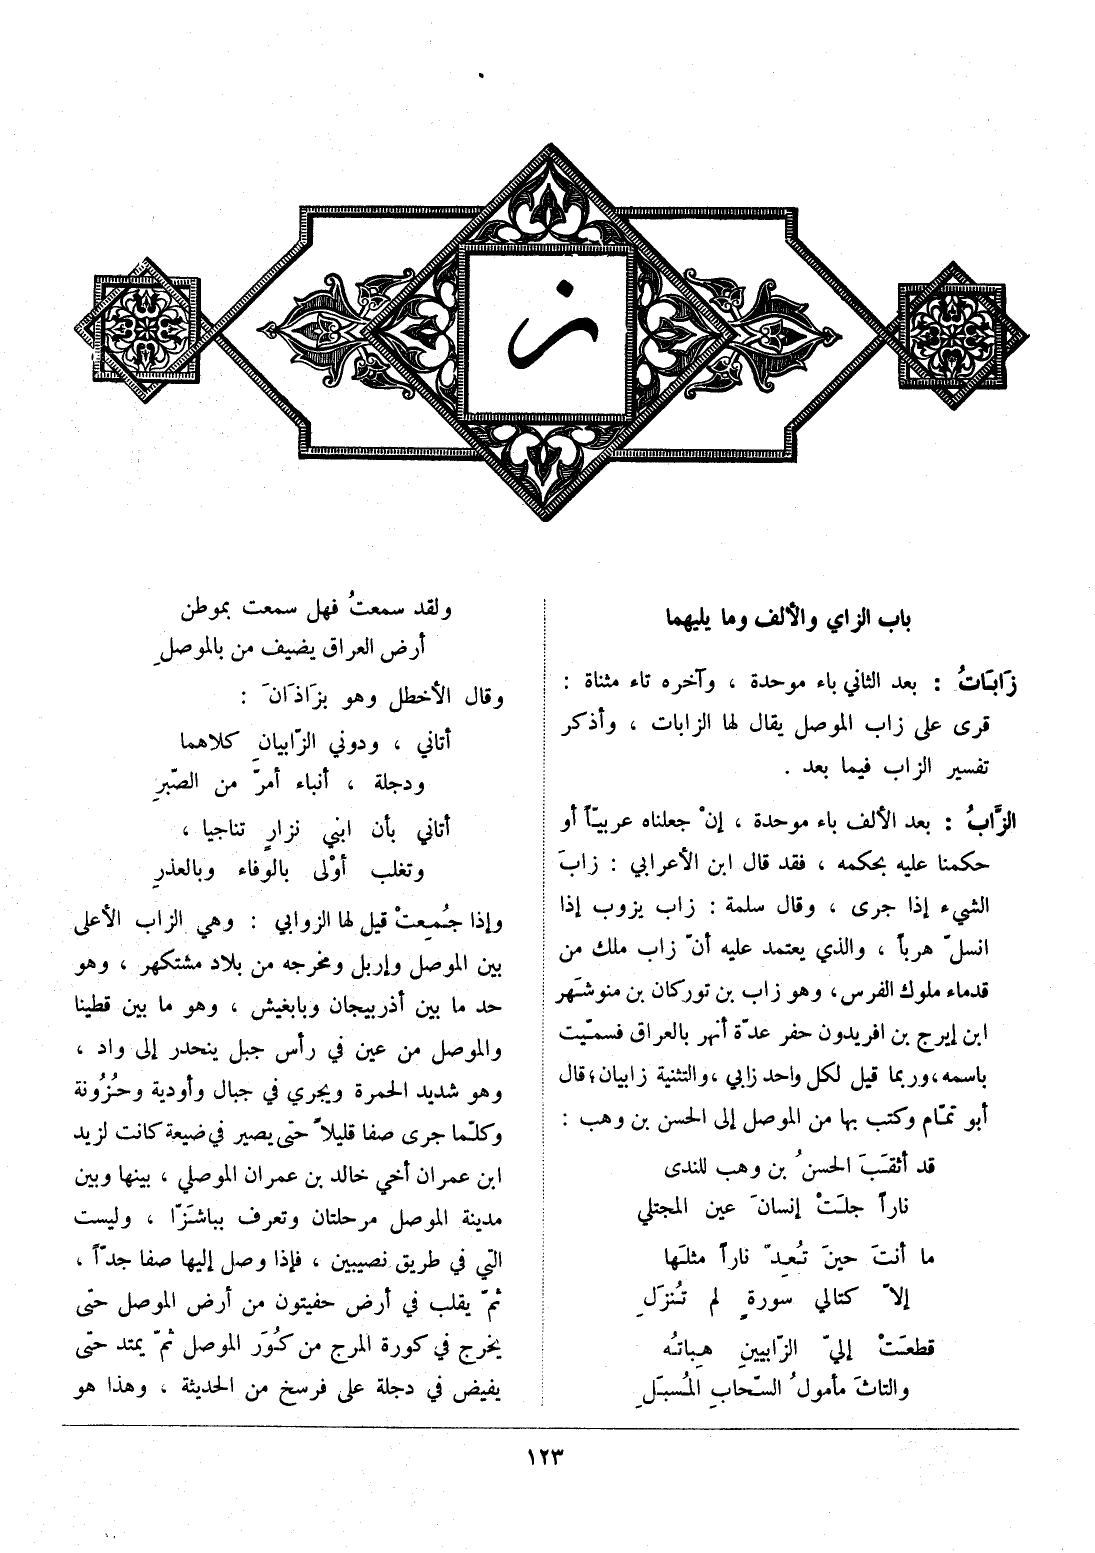 ز
باب الزاي والألف وما يليهما
زَابَاتُ : بعد الثاني باء موحدة ، وآخره تاء مثناة :
قرى على زاب الموصل يقال لها الزابات ، وأذكر
تفسير الزاب فيما بعد .
الزَّابُ : بعد الألف باء موحدة ، إنْ جعلناه عربيّاً أو
حكمنا عليه بحكمه ، فقد قال ابن الأعرابي : زابَ
الشيء إذا جرى ، وقال سلمة : زاب يزوب إذا
انسلّ هرباً ، والذي يعتمد عليه أنّ زاب ملك من
قدماء ملوك الفرس، وهو زاب بن توركان بن منوشَهر
ابن إيرج بن افريدون حفر عدّة أنهر بالعراق فسمّيت
باسمه،وربما قيل لكل واحد زابي ،والتثنية زابيان؛قال
أبو تمّام وكتب بها من الموصل إلى الحسن بن وهب :
قد أثقَبَ الحسنُ بن وهب للندى
ناراً جلَتْ إنسانَ عين المجتلي
ما أنتَ حينَ تُعِدّ ناراً مثلَها
إلاّ كتالي سورةٍ لم تُنزَلِ
قطعَتْ إليّ الزّابيينِ هِباتُه
والتاثَ مأمولُ السّحابِ المُسبَلِ
ولقد سمعتُ فهل سمعت بموطن
أرض العراق يضيف من بالموصلِ
وقال الأخطل وهو بزَاذَانَ :
أتاني ، ودوني الزّابيانِ كلاهما
ودجلة ، أنباء أمرّ من الصّبرِ
أتاني بأن ابني نزارٍ تناجيا ،
وتغلب أوْلى بالوفاء وبالعذرِ
وإذا جُمِعتْ قيل لها الزوابي : وهي الزاب الأعلى
بين الموصل وإربل ومخرجه من بلاد مشتكهر ، وهو
حد ما بين أذربيجان وبابغيش ، وهو ما بين قطينا
والموصل من عين في رأس جبل ينحدر إلى واد ،
وهو شديد الحمرة ويجري في جبال وأودية وحُزُونة
وكلّما جرى صفا قليلاً حتى يصير في ضيعة كانت لزيد
ابن عمران أخي خالد بن عمران الموصلي ، بينها وبين
مدينة الموصل مرحلتان وتعرف بباشَزّا ، وليست
التي في طريق نصيبين ، فإذا وصل إليها صفا جدّاً ،
ثمّ يقلب في أرض حفيتون من أرض الموصل حتى
يخرج في كورة المرج من كُوَر الموصل ثمّ يمتد حتى
يفيض في دجلة على فرسخ من الحديثة ، وهذا هو
١٢٣